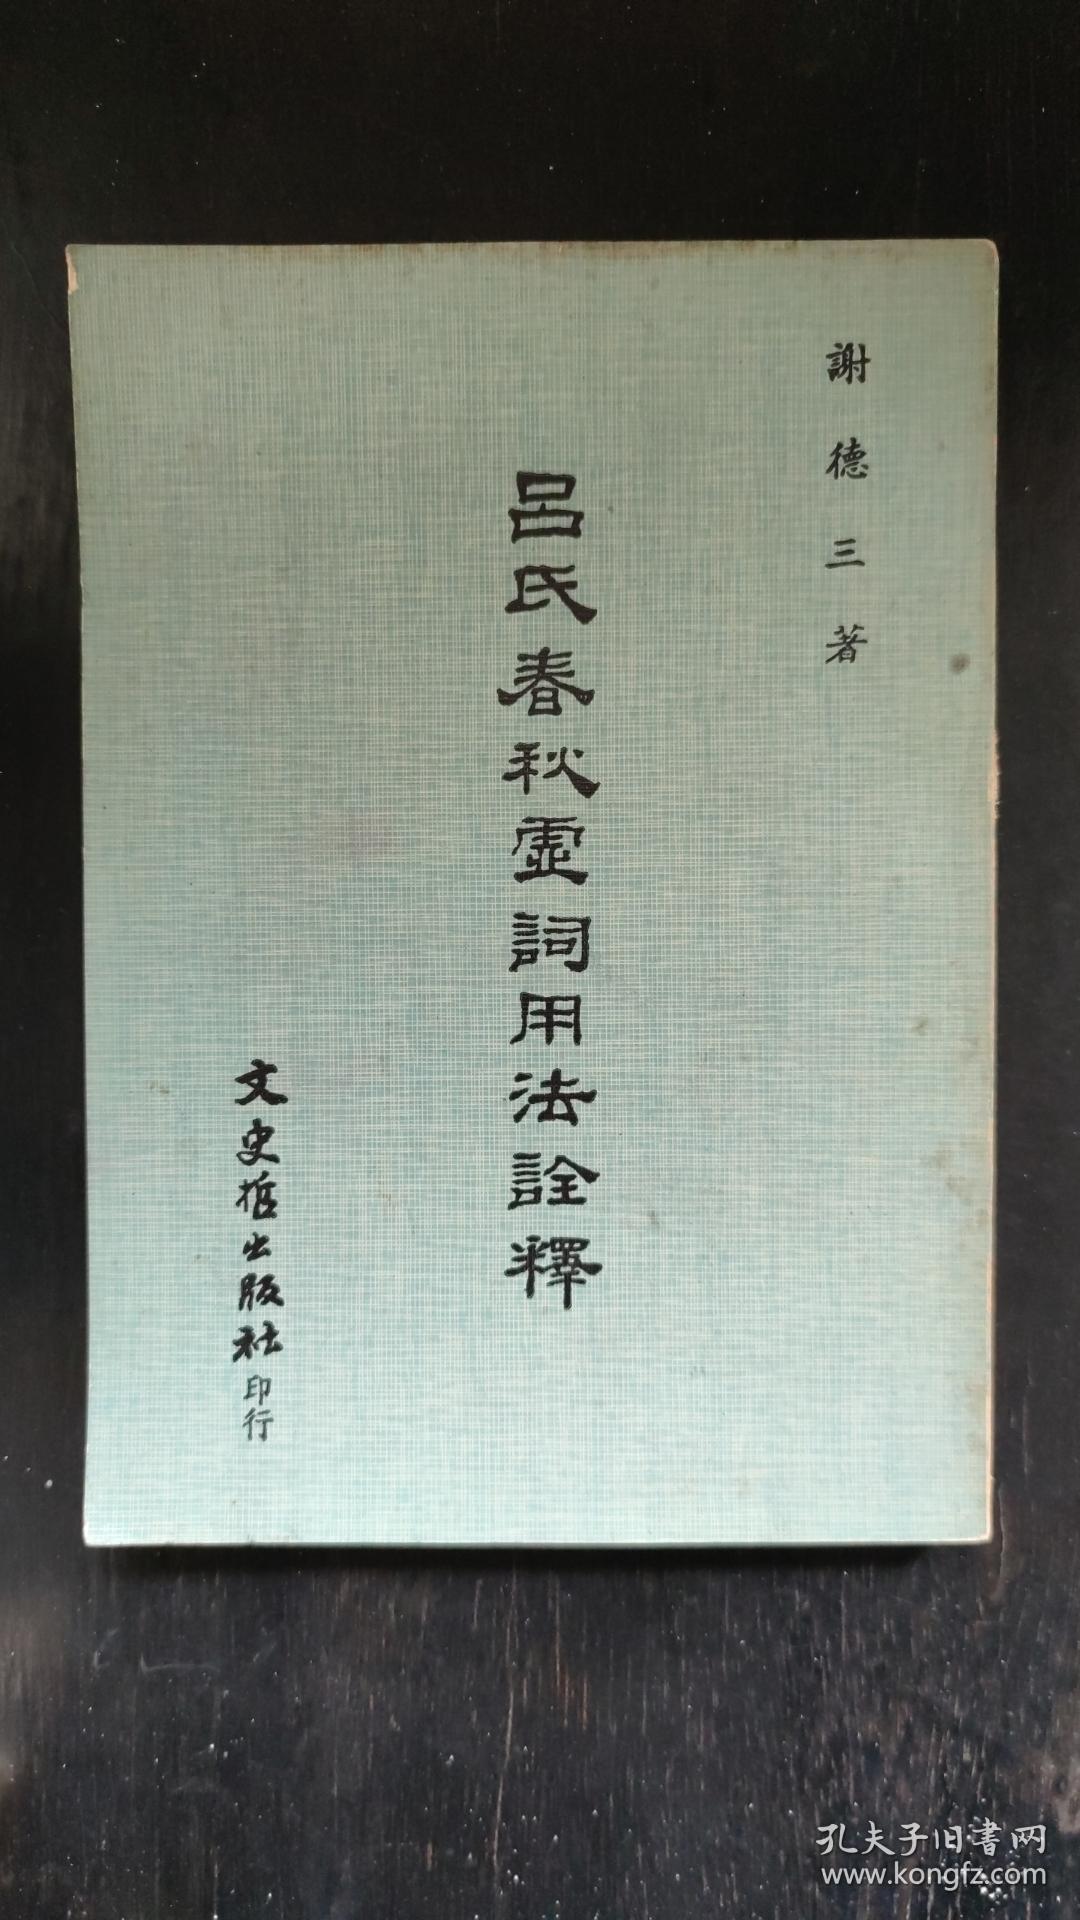 謝德三著
呂氏春秋虛詞用法詮釋
文史哲出版社印行
孔夫子旧書网
www.kongfz.com